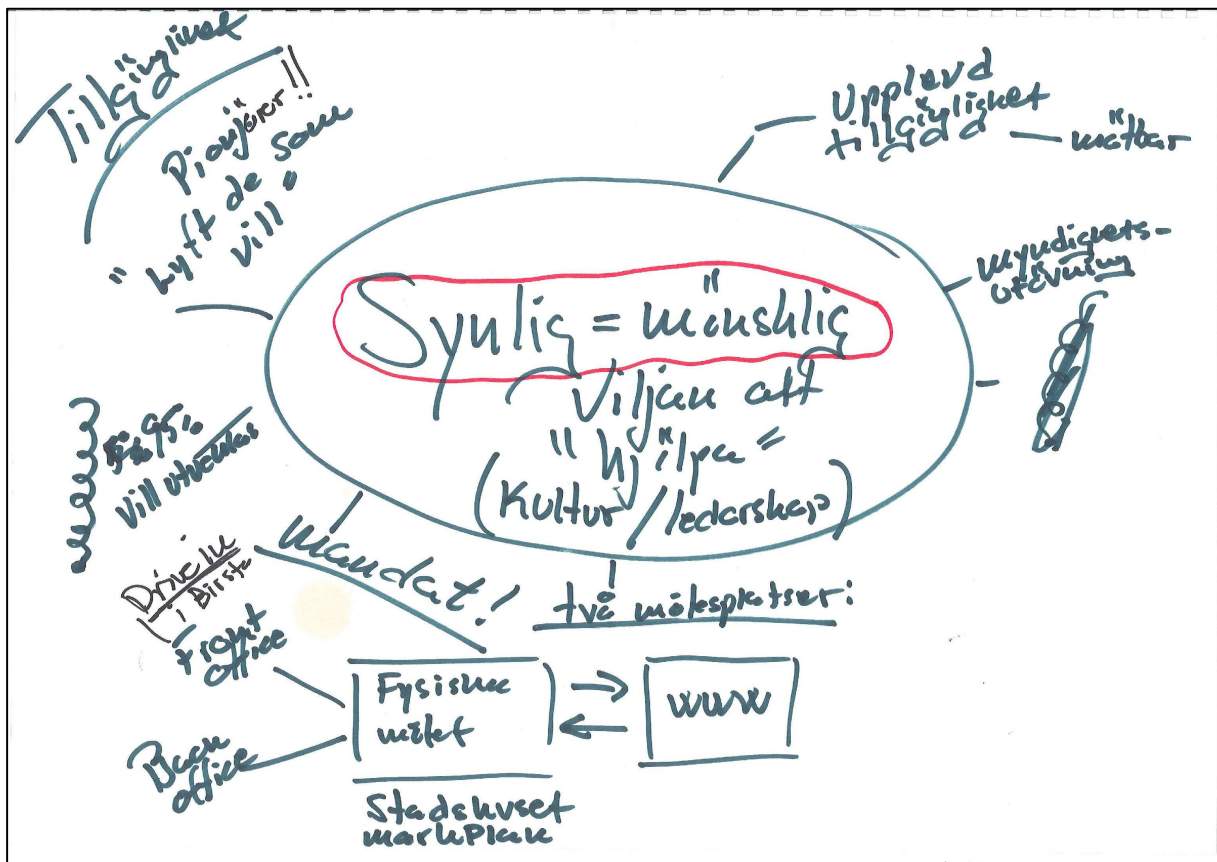 Tillgänglighet
Pionjärer!!
"Lyft de som
vill"
Upplevd
tillgänglighet
mätbar
Myndighets-
utövning
Synlig = mänsklig
Viljan att
"hjälpa"
(Kultur/ledarskap)
95%
Vill utvecklas
Mandat!
två mötesplatser:
Drive in
i Birsta
Front
office
Back
office
Fysiska
mötet
www
Stadshuset
markplan